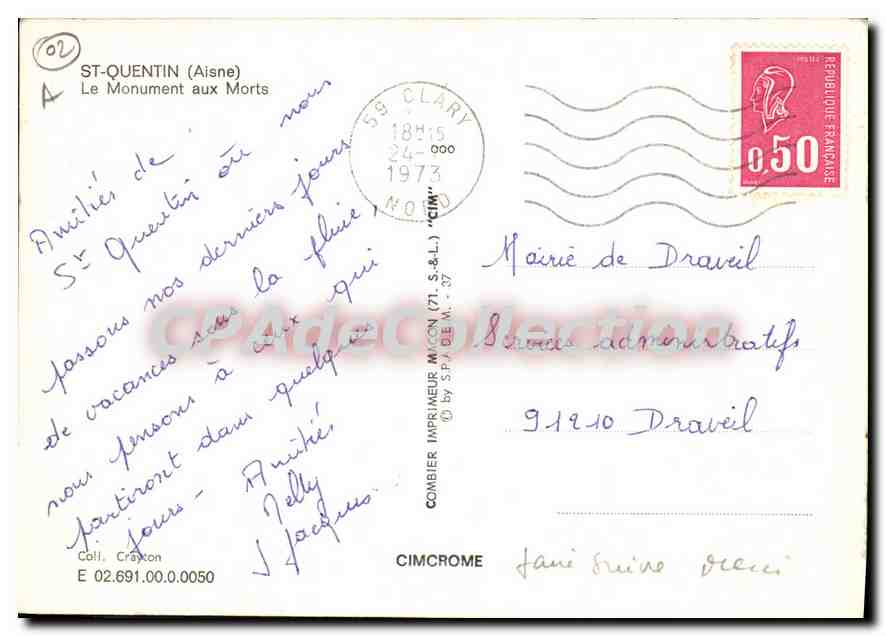 02
A
ST-QUENTIN (Aisne)
Le Monument aux Morts
Amitiés de
St Quentin où nous
passons nos derniers jours
de vacances sous la pluie,
nous pensons à ceux qui
partiront dans quelques
jours - Amitiés
Nelly
Jacques
Coll. Crayton
E 02.691.00.0.0050
59 CLARY
18H15
24-
1973
NORD
COMBIER IMPRIMEUR MACON (71. S.-&-L.) "CIM"
© by S.P.A.D.E.M. - 37
CIMCROME
POSTES
RÉPUBLIQUE FRANÇAISE
0,50
Mairie de Draveil
Services administratifs
91210 Draveil
faire suivre merci
CPAdeCollection